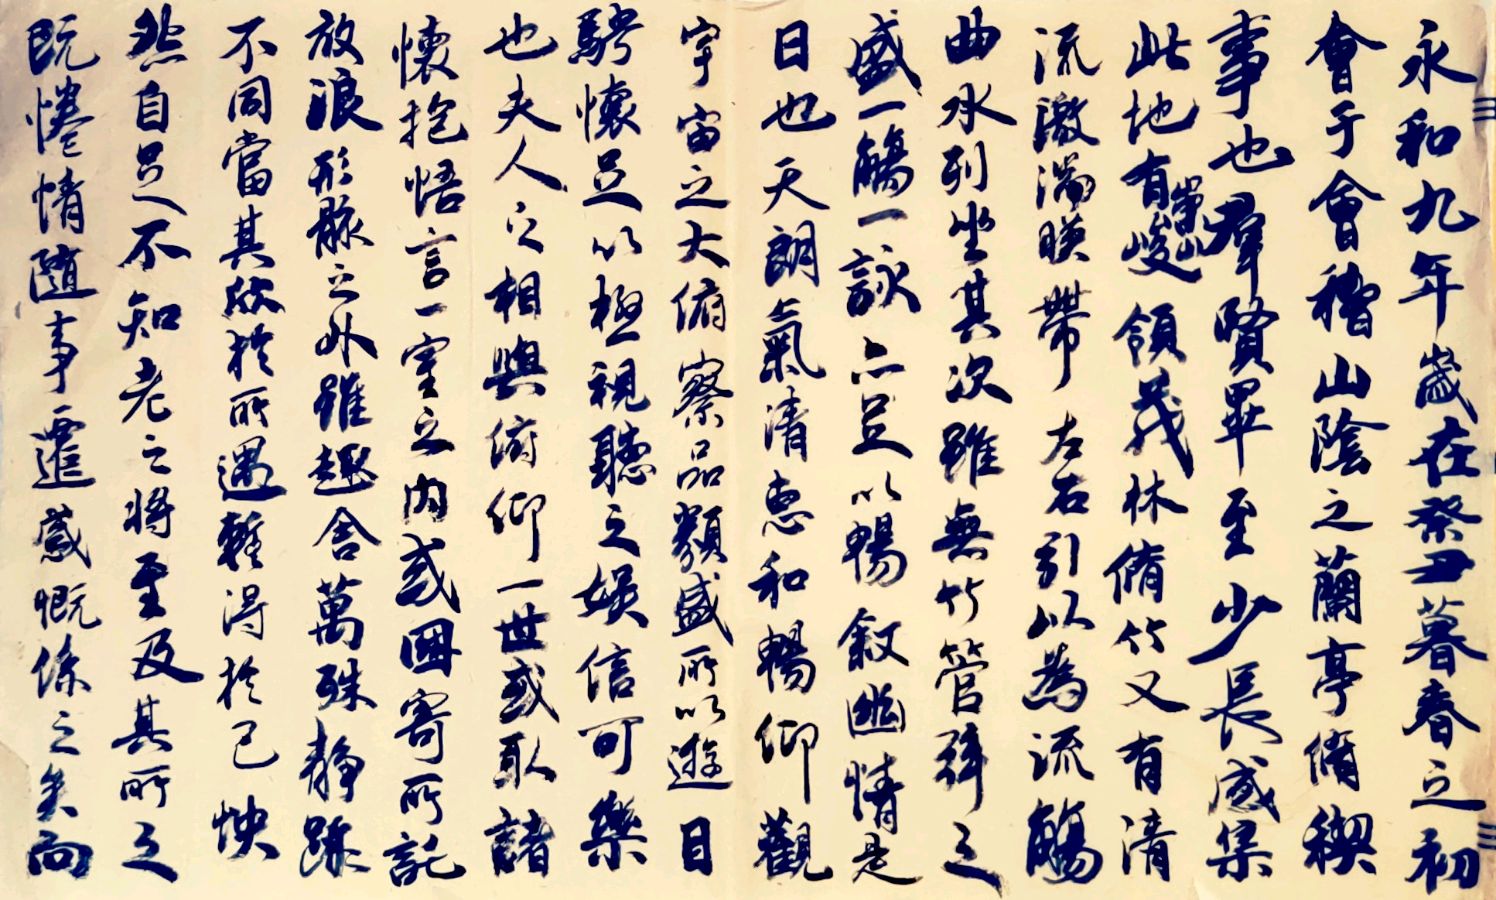 永和九年歲在癸丑暮春之初
會于會稽山陰之蘭亭脩稧
事也羣賢畢至少長咸集
此地有崇山峻領茂林脩竹又有清
流激湍暎帶左右引以為流觴
曲水列坐其次雖無竹管弦之
盛一觴一詠亦足以暢叙幽情是
日也天朗氣清惠和暢仰觀
宇宙之大俯察品類盛所以遊目
騁懷足以極視聽之娛信可樂
也夫人之相與俯仰一世或取諸
懷抱悟言一室之內或因寄所託
放浪形骸之外雖趣舍萬殊静躁
不同當其欣於所遇暫得於己怏
然自足不知老之將至及其所之
既惓情隨事遷感慨係之矣向